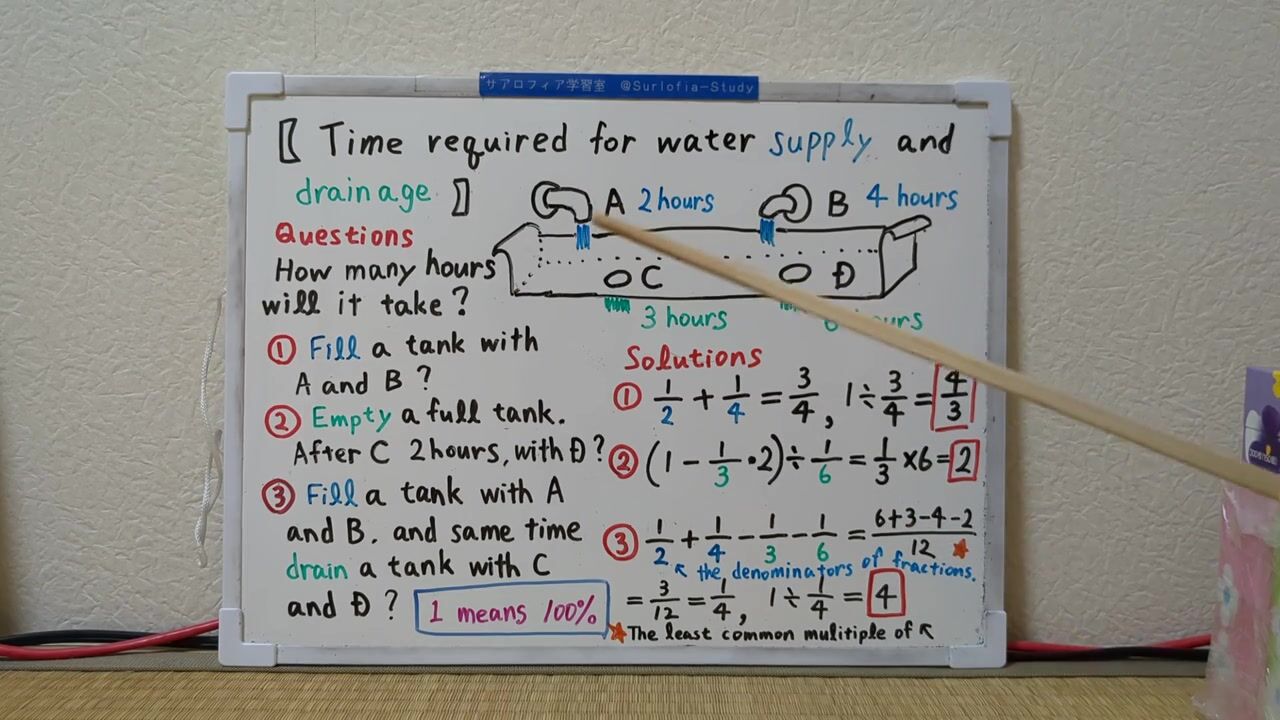 サアロフィア学習室 @Surlofia-Study
【 Time required for water supply and
drainage 】
A 2 hours
B 4 hours
C
D
3 hours
Questions
How many hours
will it take?
① Fill a tank with
A and B?
② Empty a full tank.
After C 2 hours, with D?
③ Fill a tank with A
and B, and same time
drain a tank with C
and D?
1 means 100%
Solutions
① 1/2 + 1/4 = 3/4, 1 ÷ 3/4 = 4/3
② (1 - 1/3 • 2) ÷ 1/6 = 1/3 × 6 = 2
③ 1/2 + 1/4 - 1/3 - 1/6 = (6+3-4-2)/12 ★
↖ the denominators of fractions.
= 3/12 = 1/4, 1 ÷ 1/4 = 4
★ The least common mulitiple of ↖